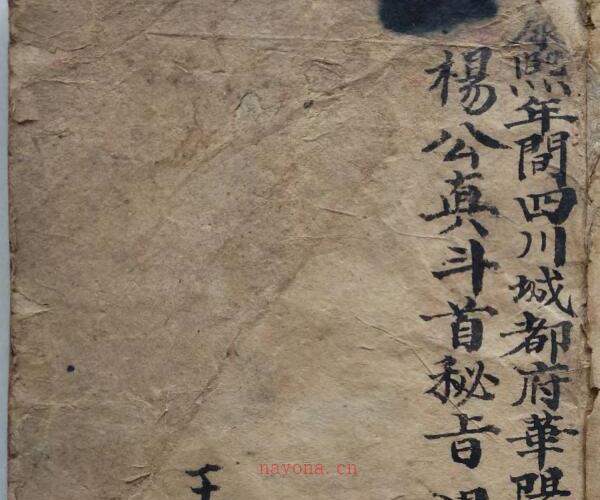 康熙年間四川城都府華陽
楊公真斗首秘旨
千
nayona.cn